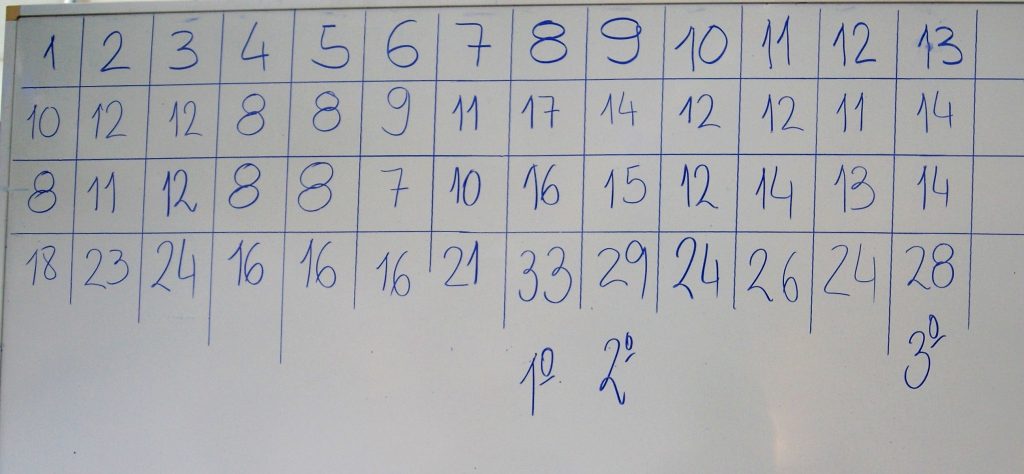 1 2 3 4 5 6 7 8 9 10 11 12 13
10 12 12 8 8 9 11 17 14 12 12 11 14
8 11 12 8 8 7 10 16 15 12 14 13 14
18 23 24 16 16 16 21 33 29 24 26 24 28
1º 2º 3º